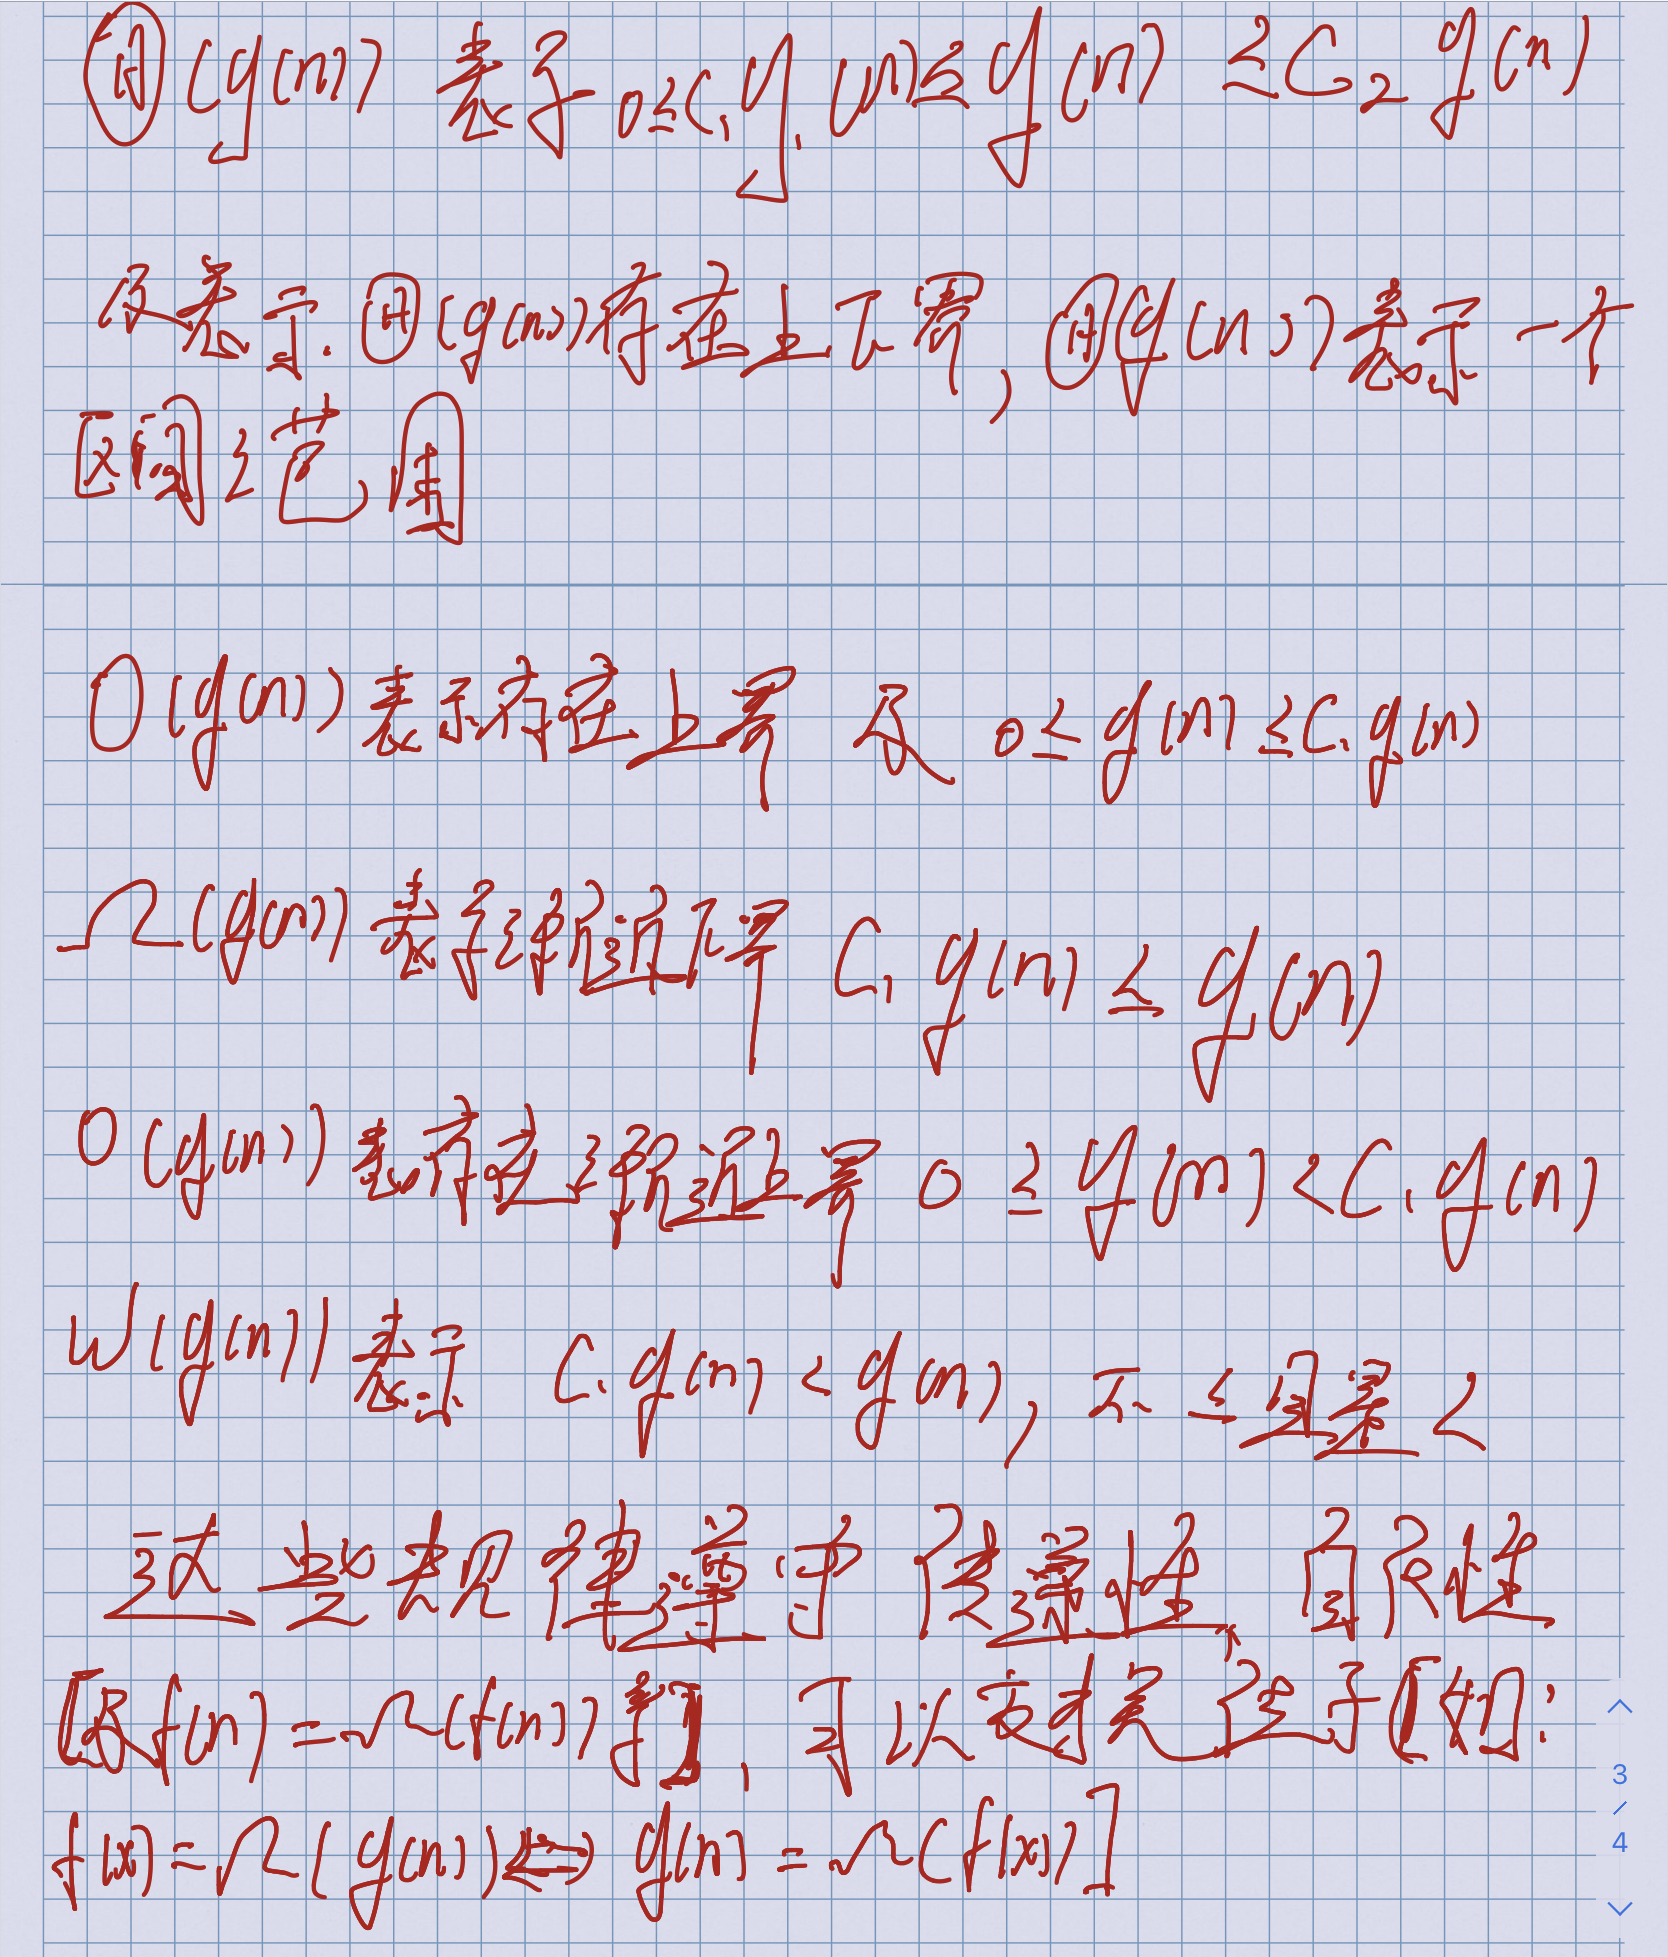 Θ(g(n)) 表示 0≤C₁g(n)≤g(n) ≤C₂g(n)
及表示 Θ(g(n))存在上下界,Θ(g(n))表示一个
区间之范围
O(g(n))表示存在上界 及 0≤g(n)≤C₁g(n)
Ω(g(n))表示渐近下界 C₁g(n)≤g(n)
o(g(n))表示存在渐近上界 0≤g(n)<C₁g(n)
ω(g(n))表示 C₁g(n)<g(n),不≤而是<
这些表现符 中 传递性、自反性
[及f(n)=Ω(f(n))],可以 [如:
f(x)=Ω(g(n))⇔g(n)=Ω(f(x))]
3
/
4